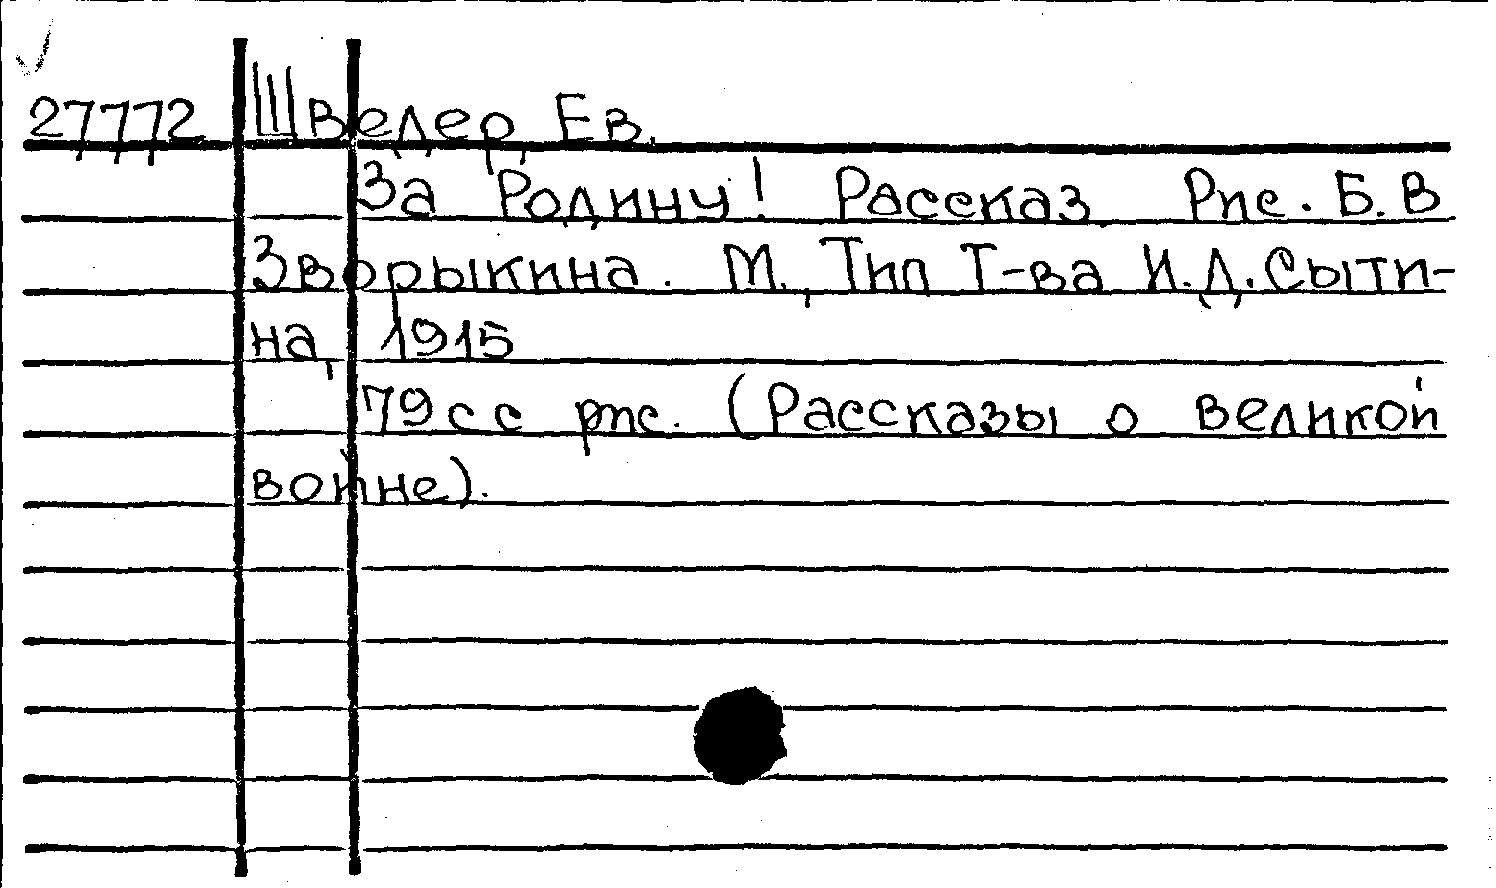 27772 Шведер, Ев.
За Родину! Рассказ. Рис. Б. В
Зворыкина. М., Тип Т-ва И.Д. Сыти-
на, 1915
79 с с рис. (Рассказы о великой
войне).